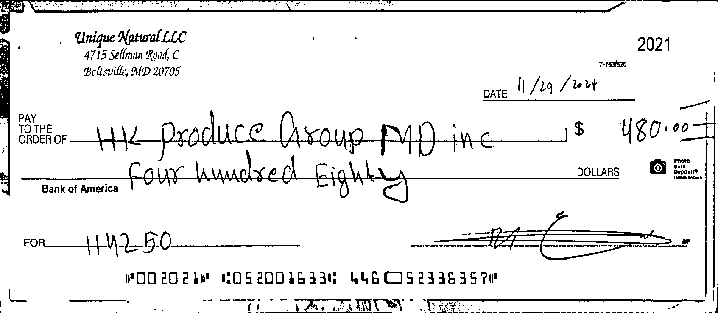 Unique Natural LLC
4715 Sellman Road, C
Beltsville, MD 20705
2021
DATE 11/29/2024
PAY
TO THE
ORDER OF HK Produce Group MD inc $ 480.00
Four hundred Eighty DOLLARS
Photo
Safe
Deposit®
Bank of America
FOR 114250
⑈002021⑈ ⑆052001633⑆ 446 52336357⑈